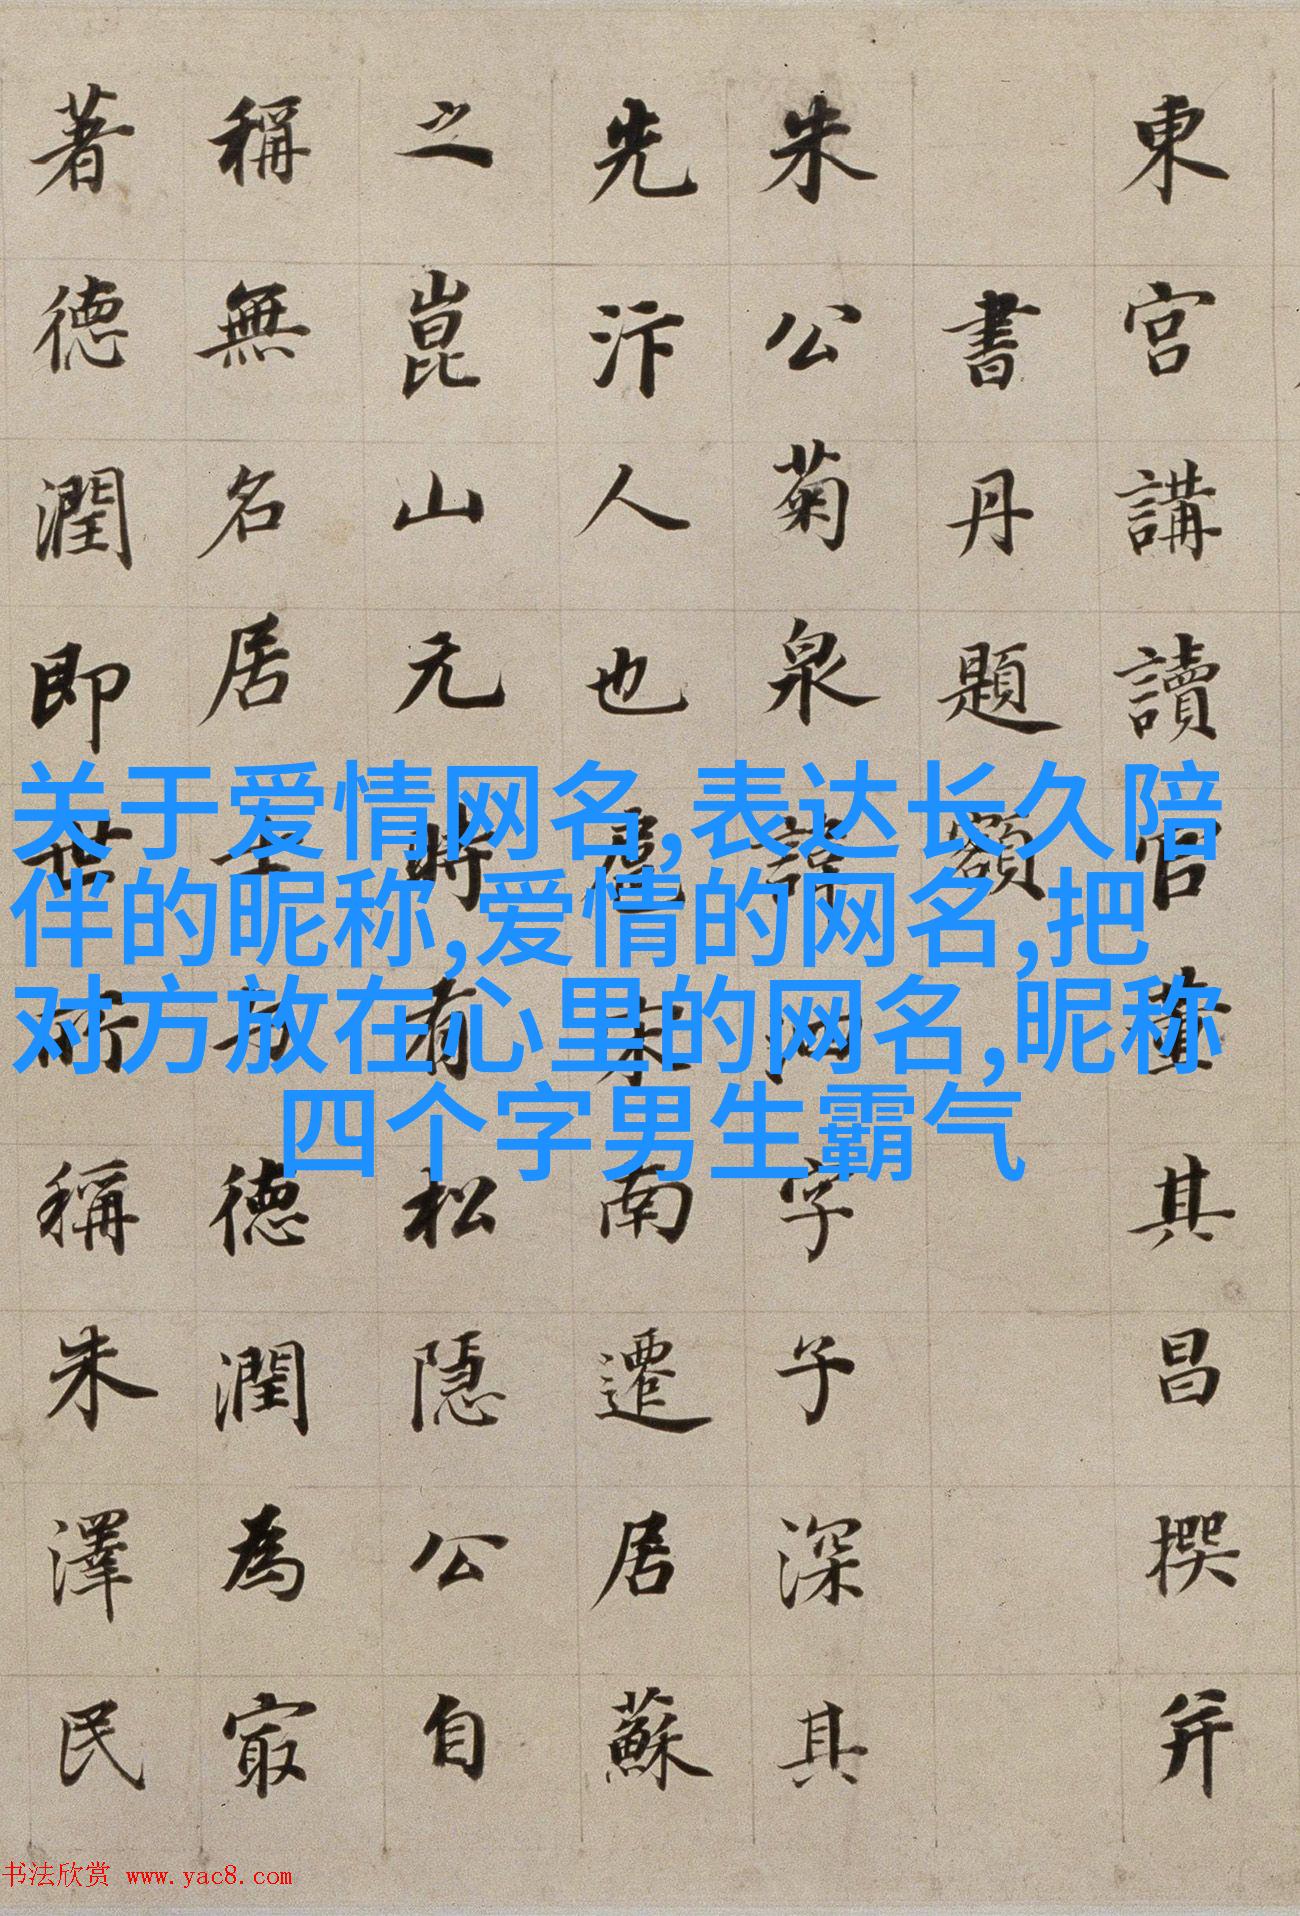 東宮講讀官董其昌撰并
書丹題額
朱公菊泉諱 字子深其
先汴人也扈宋南遷居蘇
之崑山元時有松隱公自
稱無名居 德潤為最
著德潤即世所稱朱澤民
关于爱情网名,表达长久陪
伴的昵称,爱情的网名,把
对方放在心里的网名,昵称
四个字男生霸气
书法欣赏 www.yac8.com